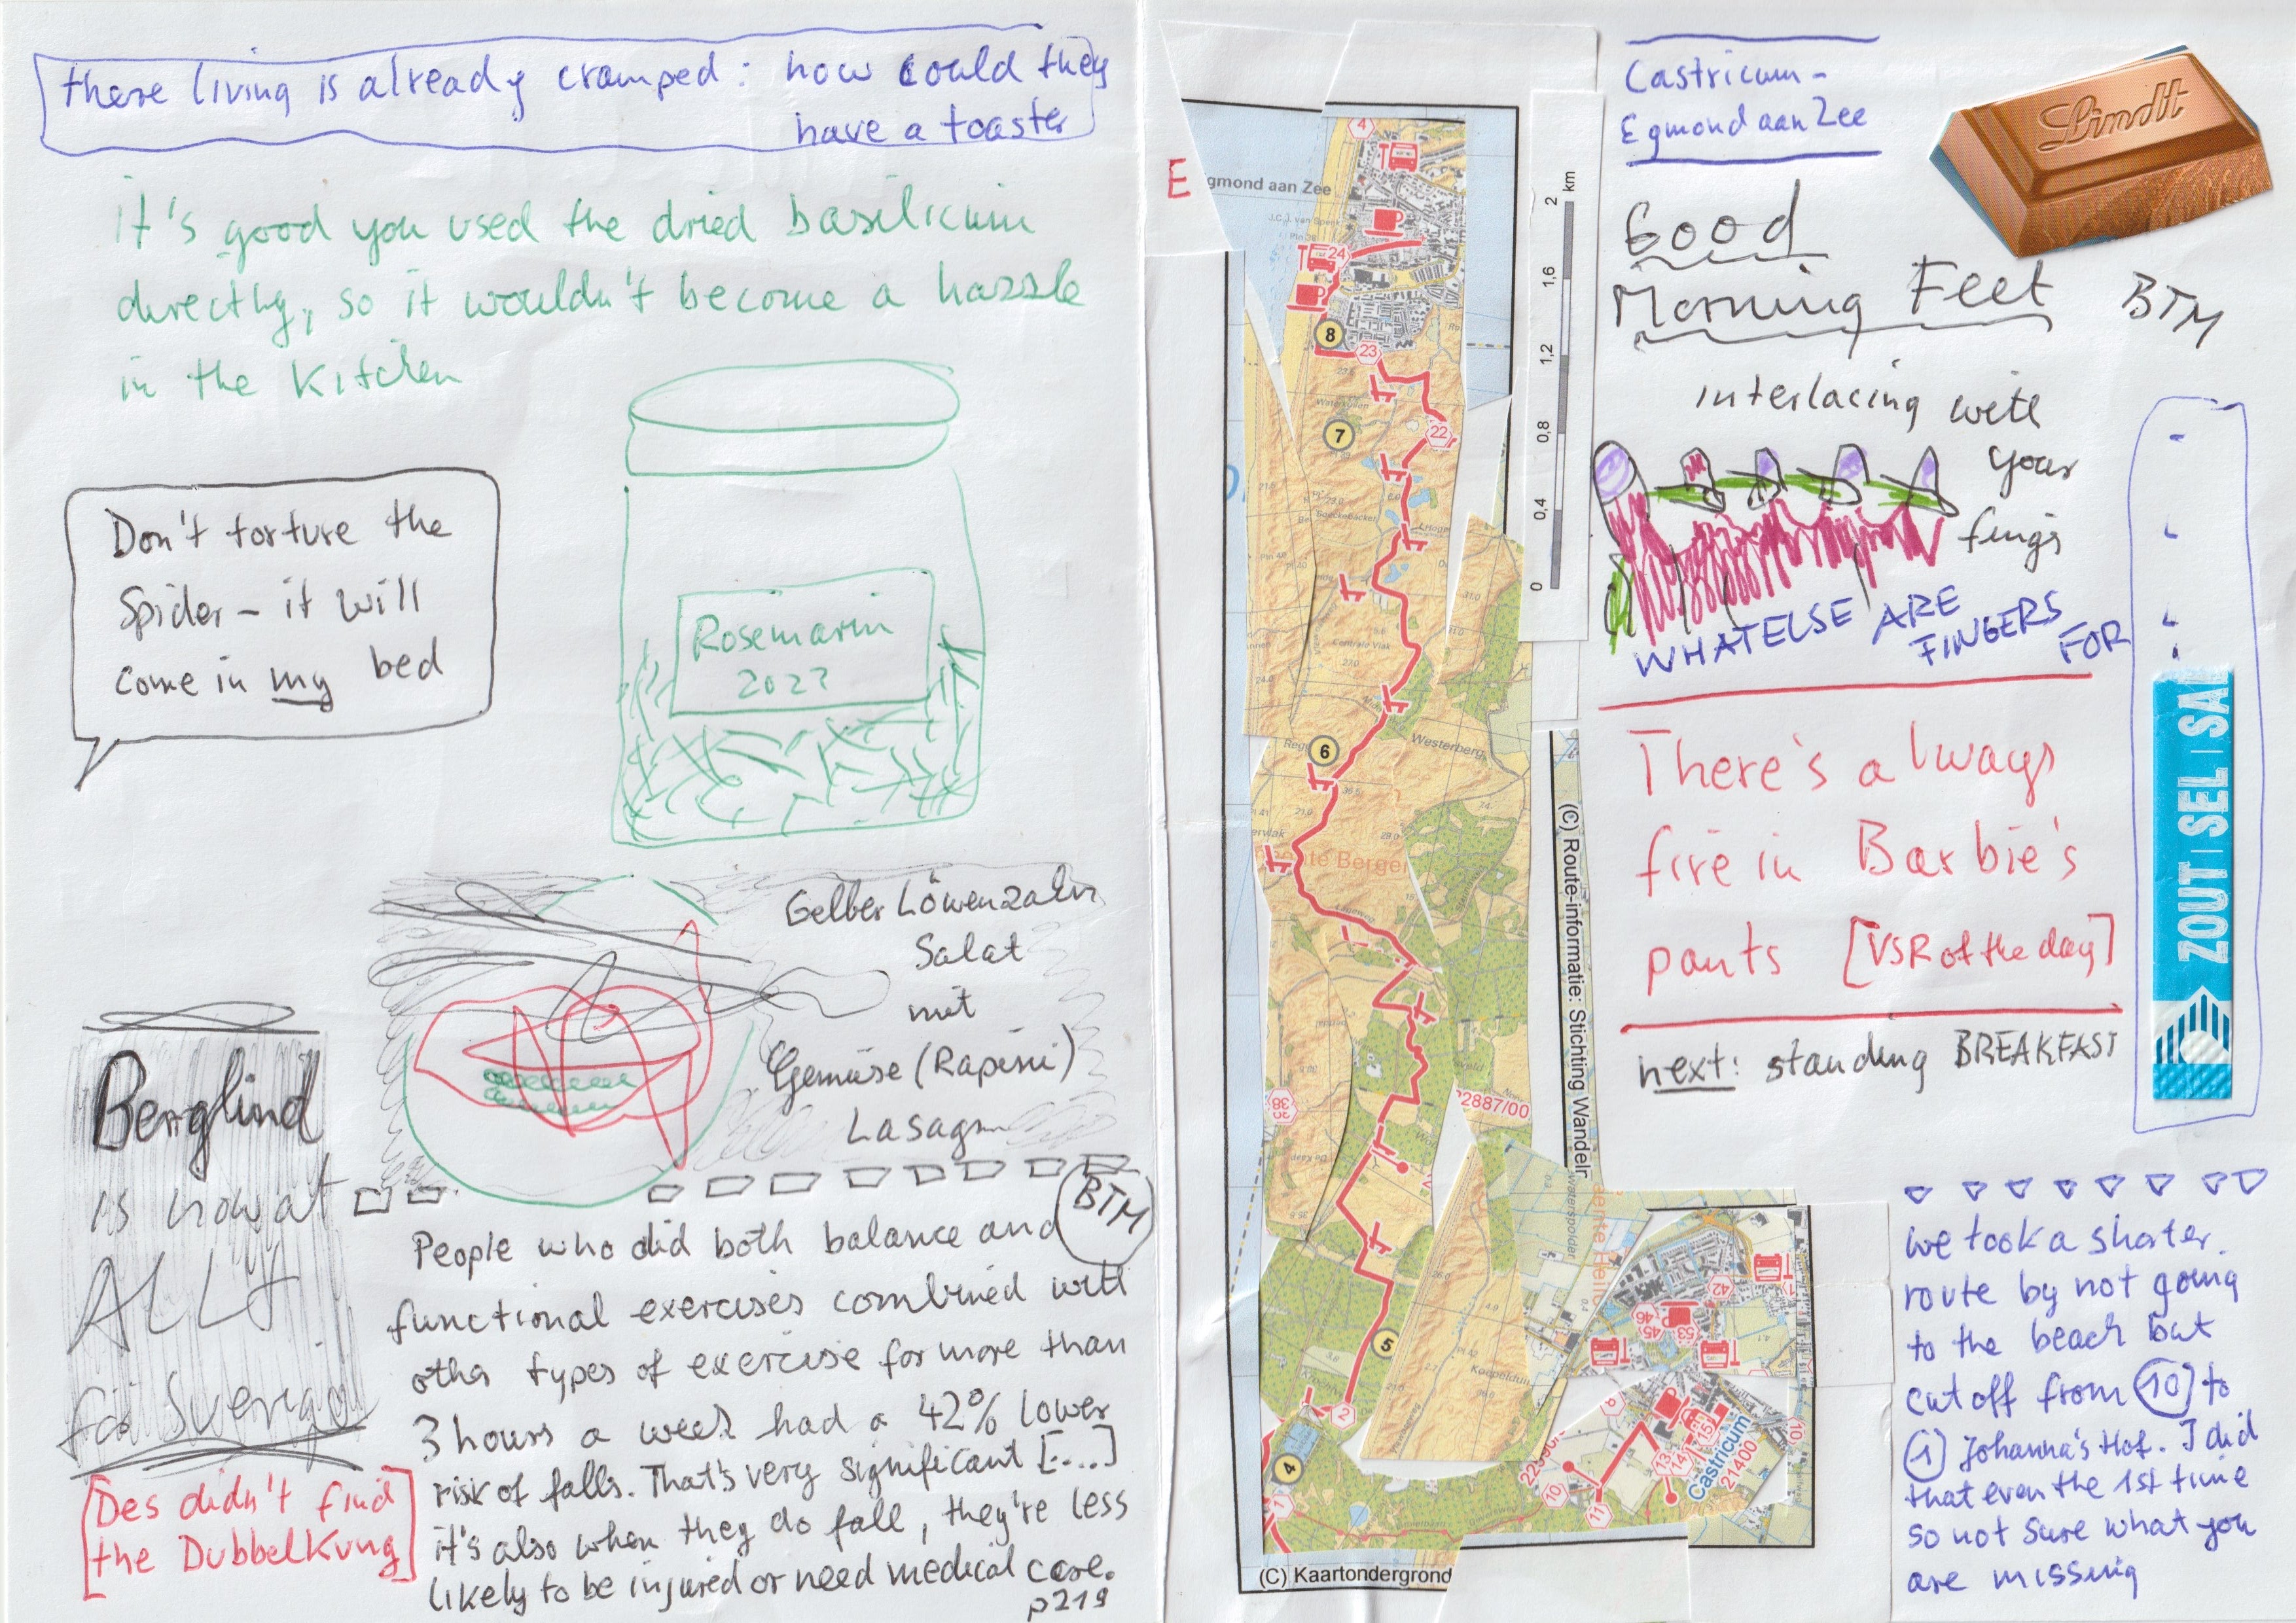 there living is already cramped: how could they
have a toaster
it's good you used the dried basilicum
directly, so it wouldn't become a hassle
in the kitchen
Don't torture the
Spider – it will
come in my bed
Rosemarin
202?
Gelber Löwenzahn
Salat
mit
Gemüse (Rapini)
Lasagn
Berglind
is now at
ALLY
för Sverige
[Des didn't find
the DubbelKung]
BTM
People who did both balance and
functional exercises combined with
other types of exercise for more than
3 hours a week had a 42% lower
risk of falls. That's very significant [....]
it's also when they do fall, they're less
likely to be injured or need medical care.
p219
E
gmond aan Zee
4
24
8
23
7
22
6
Westerberg
5
2
4
1
22887/00
38
km
2
1,6
1,2
0,8
0,4
0
(C) Route-informatie: Stichting Wandelr
(C) Kaartondergrond
42
46
45
53
10
11
13
14
15
Castricum
21400
Castricum –
Egmond aan Zee
Lindt
Good
Morning Feet
BTM
interlacing with
your
fings
WHATELSE ARE
FINGERS
FOR
There's always
fire in Barbie's
pants [VSR of the day]
next: standing BREAKFAST
ZOUT | SEL | SA
we took a shorter
route by not going
to the beach but
cut off from 10 to
1 Johanna's Hof. I did
that even the 1st time
so not sure what you
are missing